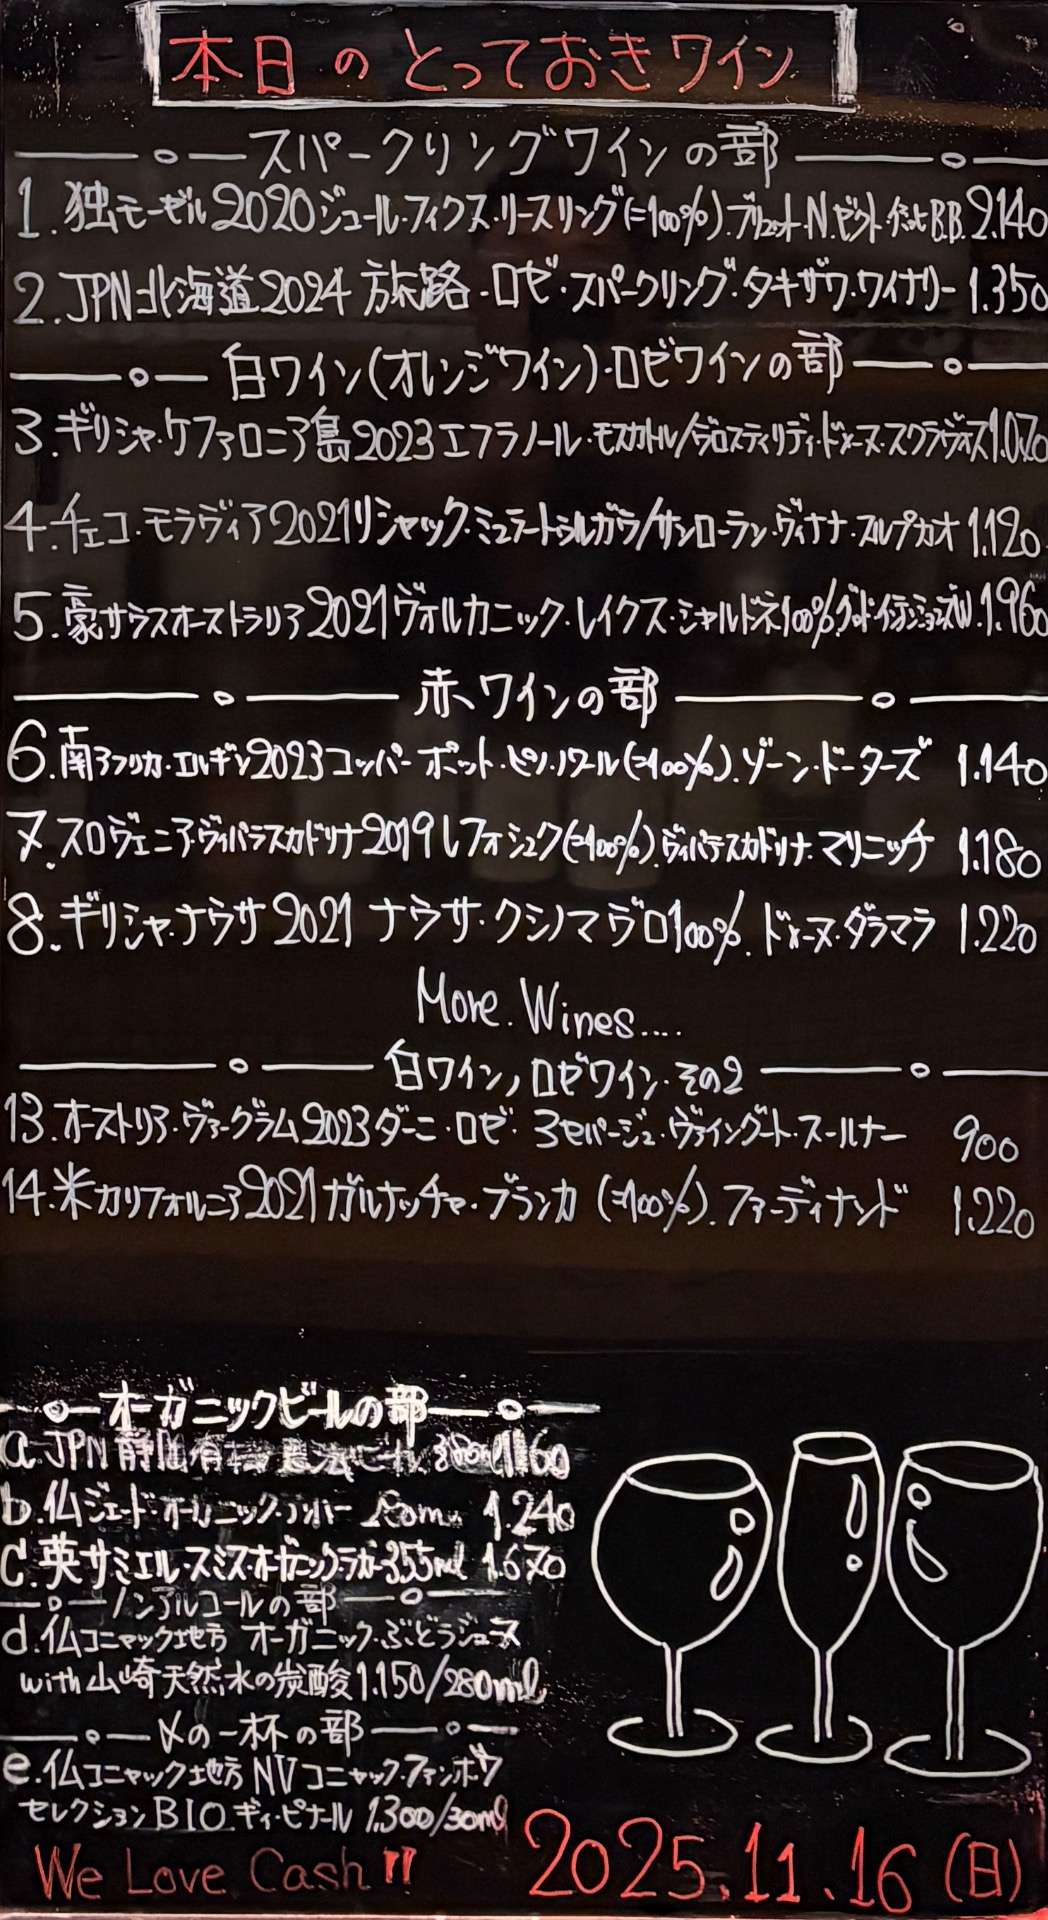 本日のとっておきワイン
スパークリングワインの部
1.独モーゼル2020ジュール・フィクス・リースリング(=100%).ブリュット.N.ゼクト.B.B. 2.140
2.JPN北海道2024 旅路・ロゼ・スパークリング・タキザワ・ワイナリー 1.350
白ワイン(オレンジワイン)・ロゼワインの部
3.ギリシャ・ケファロニア島2023エフラノール・モスカトル/ヴロスティリディ・ドメーヌ・スクラヴォス1.070
4.チェコ・モラヴィア2021リシャック・ミュラートゥルガウ/サンローラン・ヴィナナ・スルプカオ 1.120
5.豪サウスオーストラリア2021ヴォルカニック・レイクス・シャルドネ100%.グッドインテンションズW.1.960
赤ワインの部
6.南アフリカ・エルギン2023コッパーポット・ピノ・ノワール(=100%).ゾーン・ドーターズ 1.140
7.スロヴェニア・ヴィパヴァスカドリナ2019レフォシュク(=100%).ヴィパヴァスカドリナ・マリニッチ 1.180
8.ギリシャ・ナウサ2021 ナウサ・クシノマヴロ100%.ドメーヌ・ダラマラ 1.220
More.Wines....
白ワイン,ロゼワイン・その2
13.オーストリア・ヴァーグラム2023ダーニ・ロゼ・3セパージュ・ヴァイングート・スールナー 900
14.米カリフォルニア2021ガルナッチャ・ブランカ(=100%).ファーディナンド 1.220
オーガニックビールの部
a.JPN静岡有 1160
b.仏ジェード・オーガニック・アンバー 1.240
c.英サミエル・スミス・オーガニックラガー355ml 1.670
ノンアルコールの部
d.仏コニャック地方 オーガニック・ぶどうジュース
with山崎天然水の炭酸1.150/280ml
〆の一杯の部
e.仏コニャック地方NVコニャック・ファンボワ
セレクションBIO.ギィ・ピナール 1.300/30ml
We Love Cash!!
2025.11.16(日)